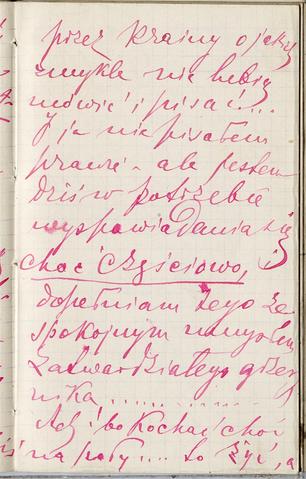 przez Krainy o jakiej
zwykle nie lubię
mówić i pisać!...
I ja nie pisałem
prawie - ale jestem
dziś w potrzebie
wyspowiadania się
choć częściowo, i
dopełniam tego ze
spokojnym umysłem
zatwardziałego grzesz
nika..........
Ach! bo kochać choć
na poły.... to żyć, a